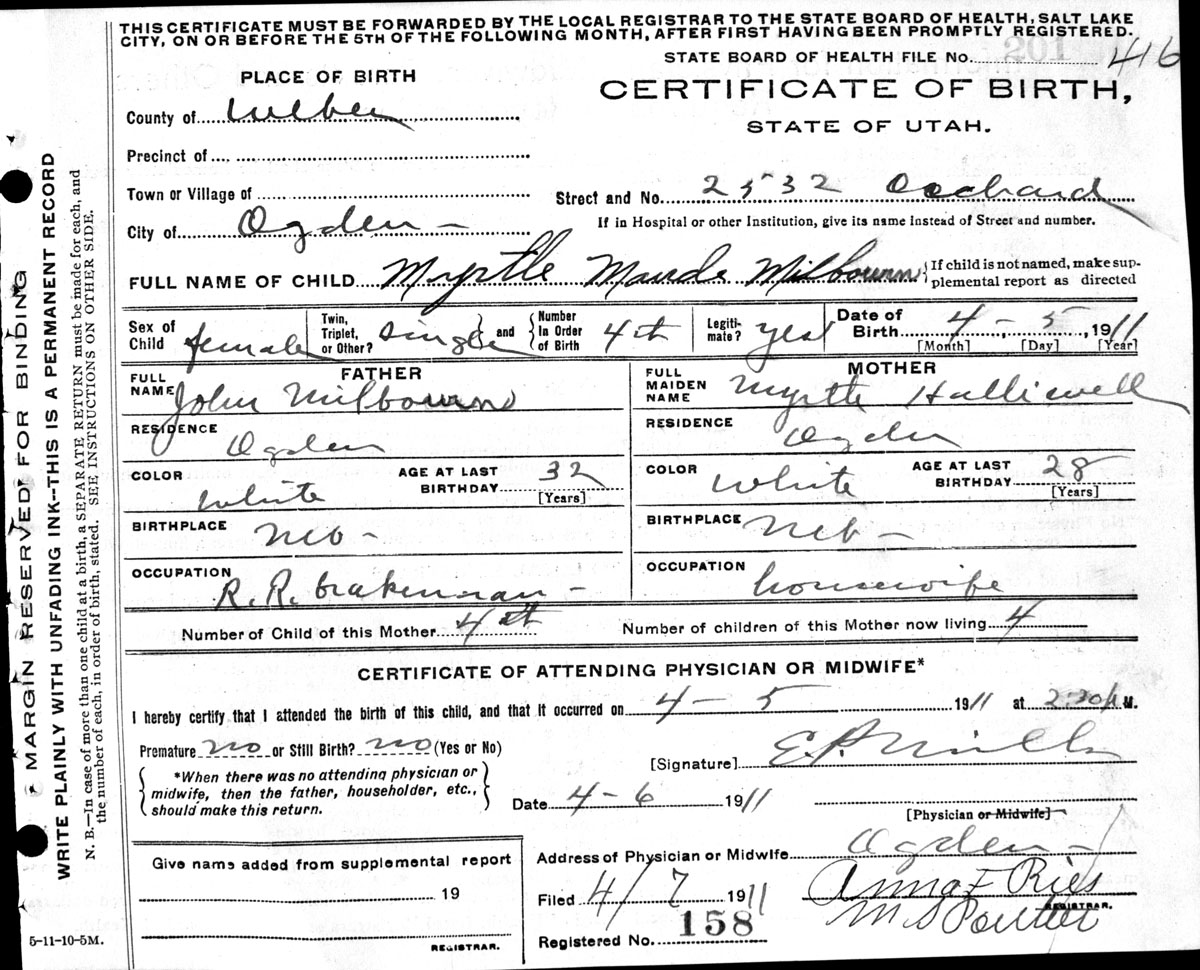 THIS CERTIFICATE MUST BE FORWARDED BY THE LOCAL REGISTRAR TO THE STATE BOARD OF HEALTH, SALT LAKE
CITY, ON OR BEFORE THE 5TH OF THE FOLLOWING MONTH, AFTER FIRST HAVING BEEN PROMPTLY REGISTERED.
STATE BOARD OF HEALTH FILE No. 201 416
PLACE OF BIRTH
CERTIFICATE OF BIRTH,
STATE OF UTAH.
County of Weber
Precinct of
Town or Village of
Street and No. 2532 Orchard
City of Ogden -
If in Hospital or other Institution, give its name instead of Street and number.
FULL NAME OF CHILD Myrtle Maude Milbourn { If child is not named, make sup-
plemental report as directed
Sex of Child female Twin, Triplet, or Other? single and Number In Order of Birth 4th Legiti- mate? yes Date of Birth 4 - 5 1911
[Month] [Day] [Year]
FATHER MOTHER
FULL NAME John Milbourn FULL MAIDEN NAME Myrtle Halliewell
RESIDENCE Ogden RESIDENCE Ogden
COLOR White AGE AT LAST BIRTHDAY 32 [Years] COLOR White AGE AT LAST BIRTHDAY 28 [Years]
BIRTHPLACE Neb - BIRTHPLACE Neb -
OCCUPATION R.R. brakeman - OCCUPATION housewife
Number of Child of this Mother 4th Number of children of this Mother now living 4
CERTIFICATE OF ATTENDING PHYSICIAN OR MIDWIFE*
I hereby certify that I attended the birth of this child, and that it occurred on 4 - 5 1911 at 2:30 P M.
Premature no or Still Birth? no (Yes or No)
[Signature] E.P. Mills
*When there was no attending physician or
midwife, then the father, householder, etc.,
should make this return.
Date 4-6 1911
[Physician or Midwife]
Give name added from supplemental report
19
REGISTRAR.
Address of Physician or Midwife Ogden -
Filed 4/7 1911 Anna F Ries
REGISTRAR.
M S
Registered No. 158
5-11-10-5M.
MARGIN RESERVED FOR BINDING
WRITE PLAINLY WITH UNFADING INK--THIS IS A PERMANENT RECORD
N. B.—In case of more than one child at a birth, a SEPARATE RETURN must be made for each, and
the number of each, in order of birth, stated. SEE INSTRUCTIONS ON OTHER SIDE.